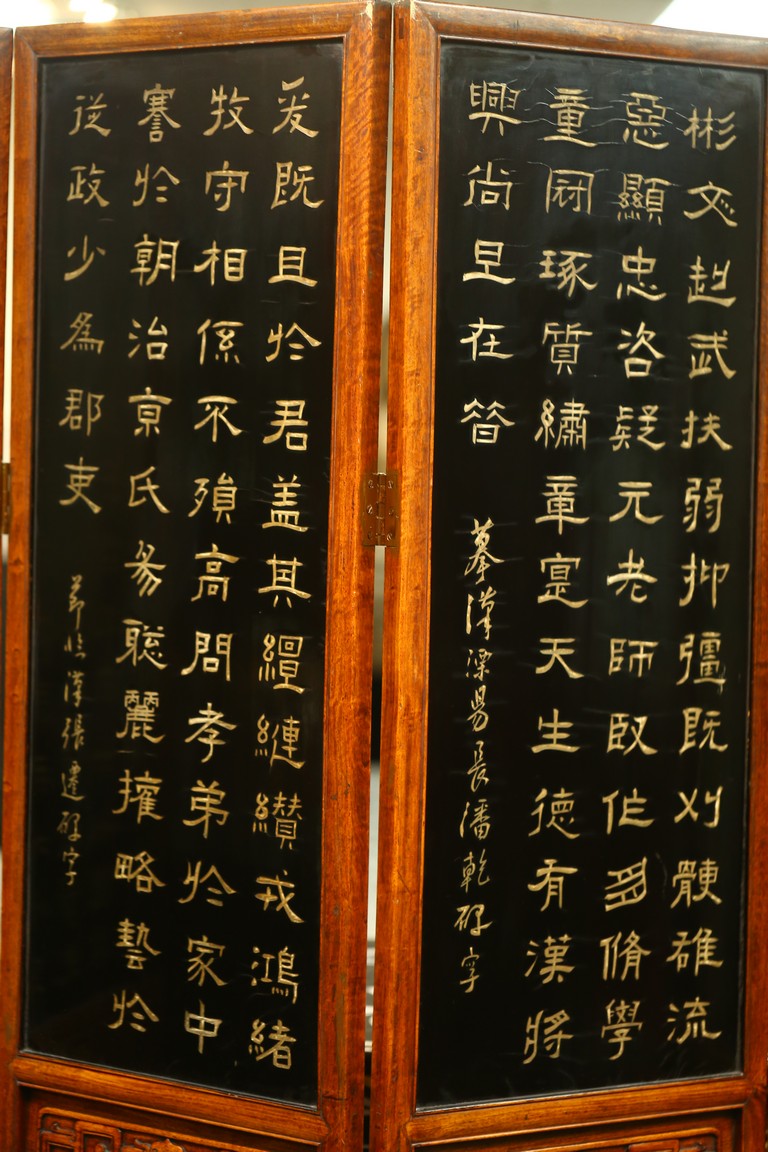 彬文赳武扶弱抑彊既刈骾雄流
惡顯忠咨疑元老師臤作多脩學
童冠琢質繡章寔天生德有漢將
興尚旦在昔
摹漢溧昜長潘乾碑字
爰既且於君盖其繵縺纘戎鴻緒
牧守相係不殞高問孝弟於家中
謇於朝治京氏易聡麗權略藝於
從政少為郡吏
節臨漢張遷碑字